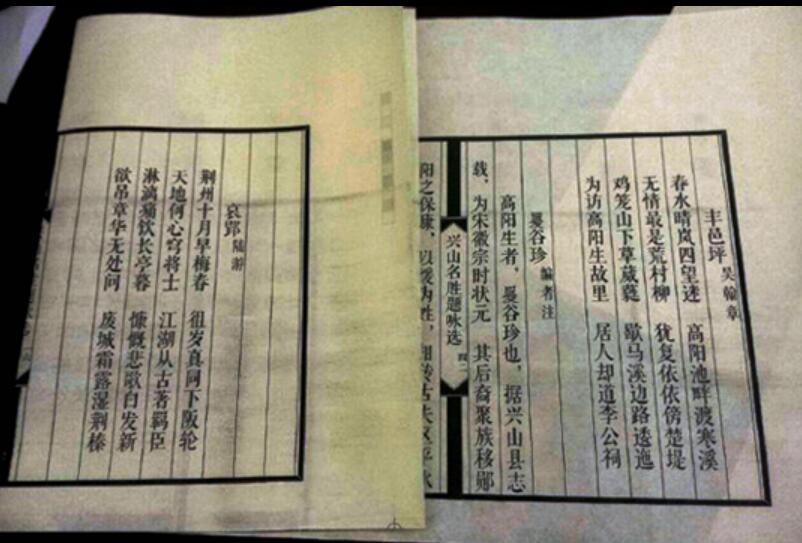 丰邑坪 吴翰章
春水晴岚四望迷 高阳池畔渡寒溪
无情最是荒村柳 犹复依依傍楚堤
鸡笼山下草葳蕤 歇马溪边路逶迤
为访高阳生故里 居人却道李公祠
谷珍 编者注
高阳生者，谷珍也，据兴山县志
载，为宋徽宗时状元 其后裔聚族移郧
阳之保康，以为姓，
兴山名胜题咏选 四二
哀郢 陆游
荆州十月早梅春 徂岁真同下阪轮
天地何心穷将士 江湖从古著羁臣
淋漓痛饮长亭暮 慷慨悲歌白发新
欲吊章华无处问 废城霜露湿荆榛